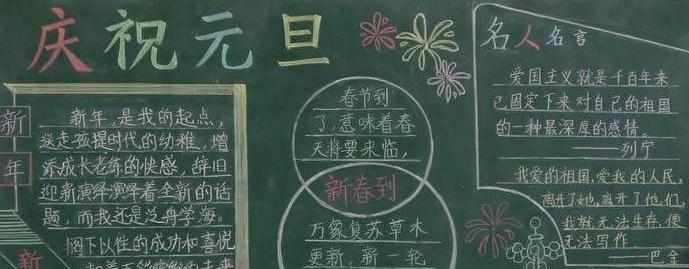 庆祝元旦
新年
新
新年,是我的起点,
送走孩提时代的幼稚,增
添成长老练的快感,辞旧
迎新演绎演绎着全新的话
题,而我还是泛舟学海。
阁下以性的成功和喜悦
春节到
了,意味着春
天将要来临,
新春到
万象复苏草木
更新,新一轮
名人名言
爱国主义就是千百年来
已固定下来对自己的祖国
的一种最深度的感情。
——列宁
我爱的祖国,爱我的人民,
离开了她,离开了他们,
我就无法生存,便
无法写作
——巴金